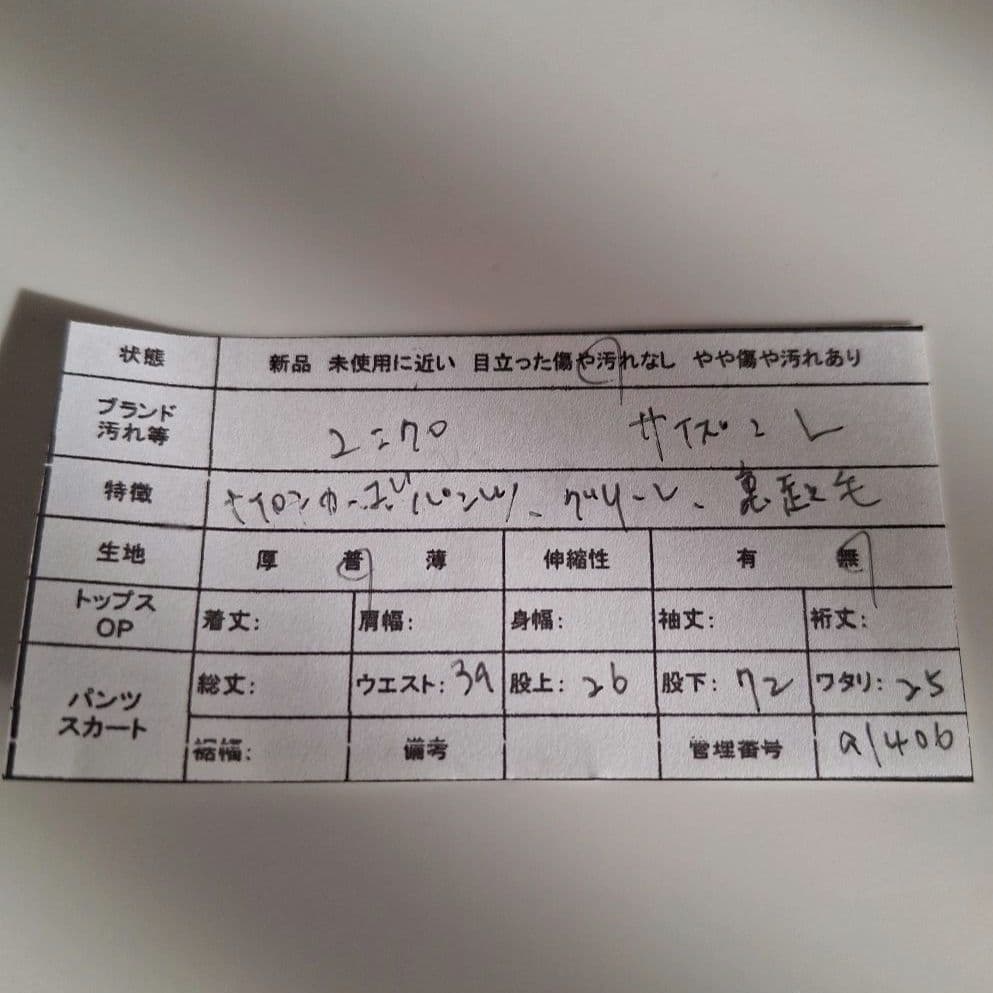 状態 新品 未使用に近い 目立った傷や汚れなし やや傷や汚れあり
ブランド 汚れ等 ユニクロ サイズ: L
特徴 ナイロンカーゴパンツ、グリーン、裏起毛
生地 厚 普 薄 伸縮性 有 無
トップス OP 着丈: 肩幅: 身幅: 袖丈: 裄丈:
パンツ スカート 総丈: ウエスト: 39 股上: 26 股下: 72 ワタリ: 25
裾幅: 備考 管理番号 a1406